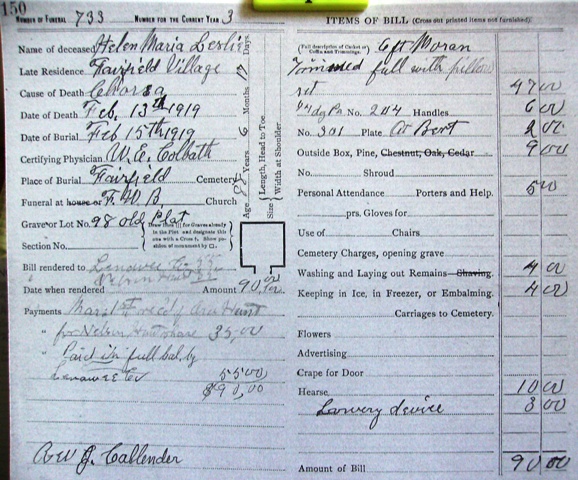 150
NUMBER OF FUNERAL 733 NUMBER FOR THE CURRENT YEAR 3
Name of deceased Helen Maria Leslie
Late Residence Fairfield Village
Cause of Death
Date of Death Feb. 13th 1919
Date of Burial Feb 15th 1919
Certifying Physician W. E. Colbath
Place of Burial Fairfield Cemetery
Funeral at house or F. W. B Church
Grave or Lot No. 98 old Plat
Section No.
Draw lines for Graves already in the Plot and designate this one with a Cross. Show position of monument by □.
Bill rendered to Lenawee Co 55
Nelson 35
Date when rendered Amount 90.00
Payments
" for Nelson 35,00
" Paid in full bal. by
Lenawee Co 55 00
$90,00
A W J. Callender
Age 85 Years 6 Months 17 Days
Size Length, Head to Toe
Width at Shoulder
ITEMS OF BILL (Cross out printed items not furnished)
(Full description of Casket or Coffin and Trimmings) Moran
Trimmed full with pillow
set 47 00
No. 204 Handles 6 00
No. 301 Plate 2 00
Outside Box, Pine, Chestnut, Oak, Cedar 9 00
No. Shroud
Personal Attendance Porters and Help. 5 00
prs. Gloves for
Use of Chairs
Cemetery Charges, opening grave
Washing and Laying out Remains Shaving 4 00
Keeping in Ice, in Freezer, or Embalming. 4 00
Carriages to Cemetery.
Flowers
Advertising
Crape for Door
Hearse 10 00
Lowery device 3 00
Amount of Bill 90 00